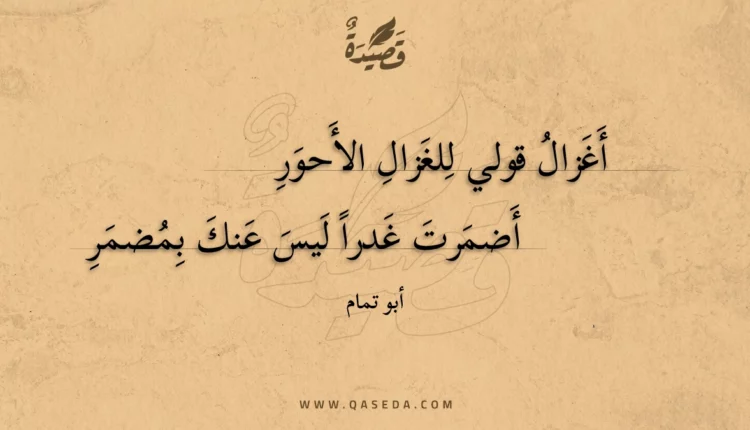 قَصِيدَةٌ
أَغَزالُ قولي لِلغَزالِ الأَحوَرِ
أَضمَرتَ غَدراً لَيسَ عَنكَ بِمُضمَرِ
أبو تمام
WWW.QASEDA.COM